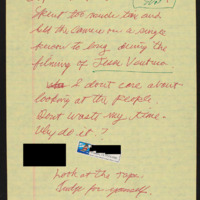 Spent too much time and
hold the camera on a single
person to long, during the
filming of Jesse Ventura
I dont care about
looking at the people
Dont waste my time -
Why do it?
Look at the tape.
Judge for yourself.